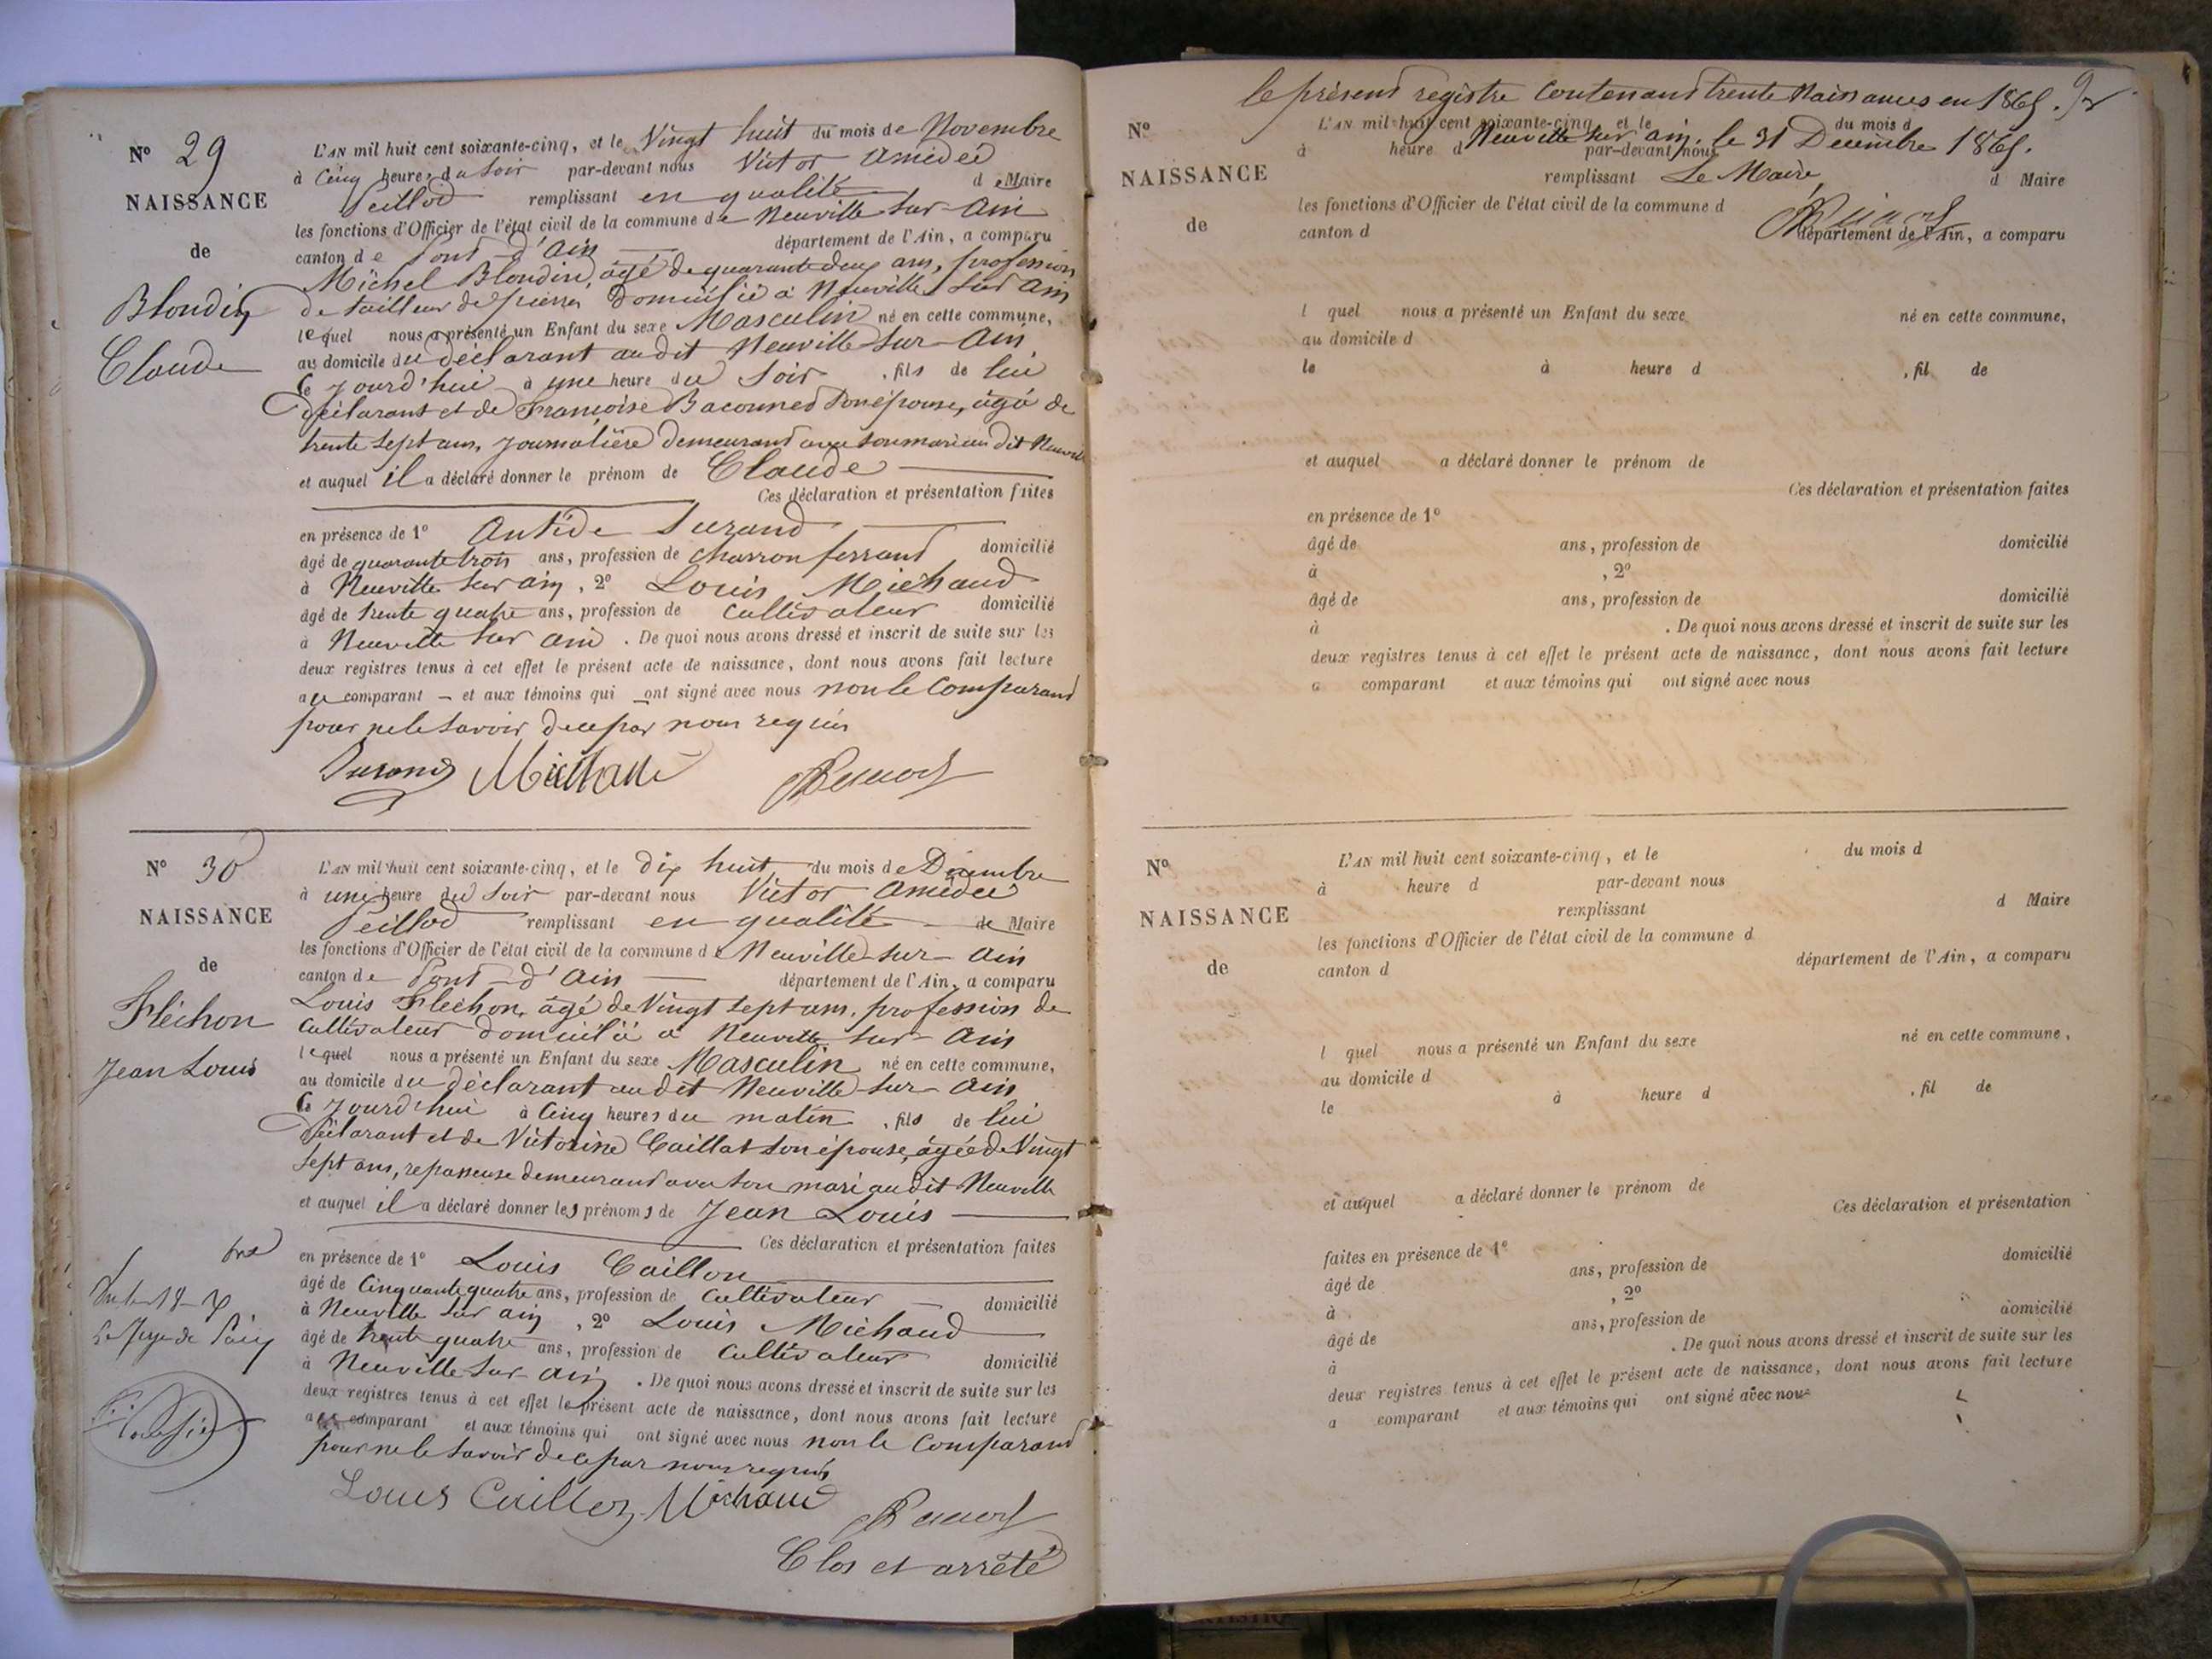 N° 29
NAISSANCE
de
Blondin
Claude
L'AN mil huit cent soixante-cinq, et le Vingt huit du mois de Novembre
à Cinq heures du Soir par-devant nous Victor Amédée
Peillod remplissant en qualité de Maire
les fonctions d'Officier de l'état civil de la commune de Neuville sur Ain
canton de Pont-d'Ain département de l'Ain, a comparu
Michel Blondin, agé de quarante deux ans, profession
de tailleur de pierres domicilié à Neuville sur Ain
lequel nous a présenté un Enfant du sexe Masculin né en cette commune,
au domicile du déclarant audit Neuville-sur-Ain
Ce jourd'hui à une heure du Soir , fils de lui
déclarant et de Françoise son épouse, agé de
trente sept ans, journalière demeurant avec son mari au dit Neuville
et auquel il a déclaré donner le prénom de Claude
Ces déclaration et présentation faites
en présence de 1° Antide Durand
âgé de quarante trois ans, profession de charron ferrand domicilié
à Neuville sur ain , 2° Louis Michaud
âgé de trente quatre ans, profession de cultivateur domicilié
à Neuville sur ain . De quoi nous avons dressé et inscrit de suite sur les
deux registres tenus à cet effet le présent acte de naissance, dont nous avons fait lecture
au comparant – et aux témoins qui ont signé avec nous non le Comparand
pour ne le savoir de ce par nous requis
Durand Michaud
N° 30
NAISSANCE
de
Fléchon
Jean Louis
L'AN mil huit cent soixante-cinq, et le dix huit du mois de Décembre
à une heure du Soir par-devant nous Victor Amédée
Peillod remplissant en qualité de Maire
les fonctions d'Officier de l'état civil de la commune de Neuville-sur-Ain
canton de Pont-d'Ain département de l'Ain, a comparu
Louis Fléchon, agé de Vingt sept ans, profession de
Cultivateur domicilié à Neuville sur-Ain
lequel nous a présenté un Enfant du sexe Masculin né en cette commune,
au domicile du déclarant audit Neuville-sur-Ain
Ce jourd'hui à Cinq heures du matin , fils de lui
déclarant et de Victorine Caillat son épouse, agée de Vingt
sept ans, repasseuse demeurant avec son mari audit Neuville
et auquel il a déclaré donner les prénoms de Jean Louis
Ces déclaration et présentation faites
en présence de 1° Louis Caillon
âgé de Cinquante quatre ans, profession de Cultivateur domicilié
à Neuville sur ain , 2° Louis Michaud
âgé de trente quatre ans, profession de Cultivateur domicilié
à Neuville sur ain . De quoi nous avons dressé et inscrit de suite sur les
deux registres tenus à cet effet le présent acte de naissance, dont nous avons fait lecture
au comparant et aux témoins qui ont signé avec nous non le Comparand
pour ne le savoir de ce par nous requis
Louis Caillon Michaud
Clos et arrêté
le présent registre Contenant trente Naissances en 1865.
Neuville sur ain, le 31 Décembre 1865.
Le Maire
N°
NAISSANCE
de
L'AN mil huit cent soixante-cinq et le du mois d
à heure d par-devant nous
remplissant d Maire
les fonctions d'Officier de l'état civil de la commune d
canton d département de l'Ain, a comparu
l quel nous a présenté un Enfant du sexe né en cette commune,
au domicile d
le à heure d , fil de
et auquel a déclaré donner le prénom de
Ces déclaration et présentation faites
en présence de 1°
âgé de ans, profession de domicilié
à , 2°
âgé de ans, profession de domicilié
à . De quoi nous avons dressé et inscrit de suite sur les
deux registres tenus à cet effet le présent acte de naissance, dont nous avons fait lecture
a comparant et aux témoins qui ont signé avec nous
N°
NAISSANCE
de
L'AN mil huit cent soixante-cinq, et le du mois d
à heure d par-devant nous
remplissant d Maire
les fonctions d'Officier de l'état civil de la commune d
canton d département de l'Ain, a comparu
l quel nous a présenté un Enfant du sexe né en cette commune,
au domicile d
le à heure d , fil de
et auquel a déclaré donner le prénom de
Ces déclaration et présentation
faites en présence de 1°
âgé de ans, profession de domicilié
à , 2°
âgé de ans, profession de domicilié
à . De quoi nous avons dressé et inscrit de suite sur les
deux registres tenus à cet effet le présent acte de naissance, dont nous avons fait lecture
a comparant et aux témoins qui ont signé avec nous